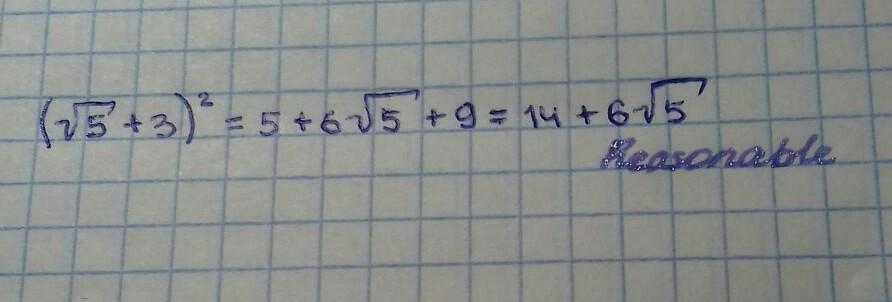 (√5 + 3)² = 5 + 6√5 + 9 = 14 + 6√5
Reasonable